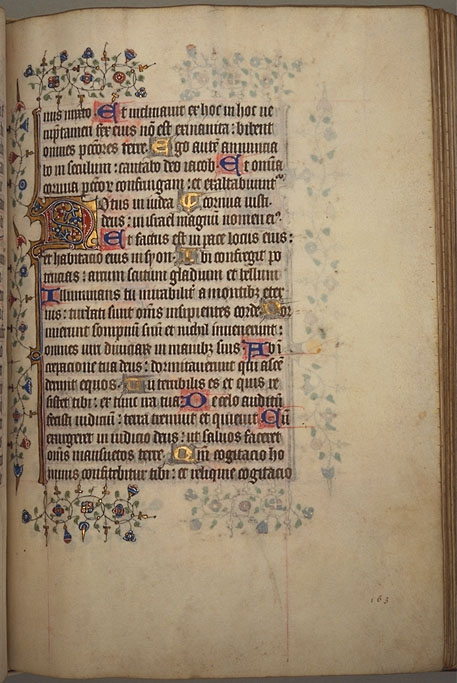 mus mixto. Et inclinauit ex hoc in hoc ue
rūptamen fex eius nō est exinanita: bibent
omnes pctōres terre. Ego autē annuntia
bo in seculum: cantabo deo iacob. Et omnia
cornua pctōꝝ confringam: et exaltabuntur
Notus in iudea Cornua iusti.
deus: in israel magnum nomen eꝰ.
Et factus est in pace locus eius:
et habitacio eius in syon. Ibi confregit po
tencias: arcum scutum gladium et bellum
Illuminans tu mirabilit̾ a montibꝫ eter
nis: turbati sunt om̄s insipientes corde Dor
mierunt sompnum suū et nichil inuenerunt:
omnes uiri diuiciaꝝ in manibꝫ suis. Ab ī
crepacione tua deus: dormitauerunt qui ascē
derunt equos. Tu terribilis es et quis re
sistet tibi: ex tunc ira tua. De celo auditū
fecisti iudiciū: terra tremuit et quieuit Cū
exurgeret in iudicio deus: ut saluos faceret
om̄s mansuetos terre. Qm̄ cogitacio ho
minis confitebitur tibi: et reliquie cogitacio
163